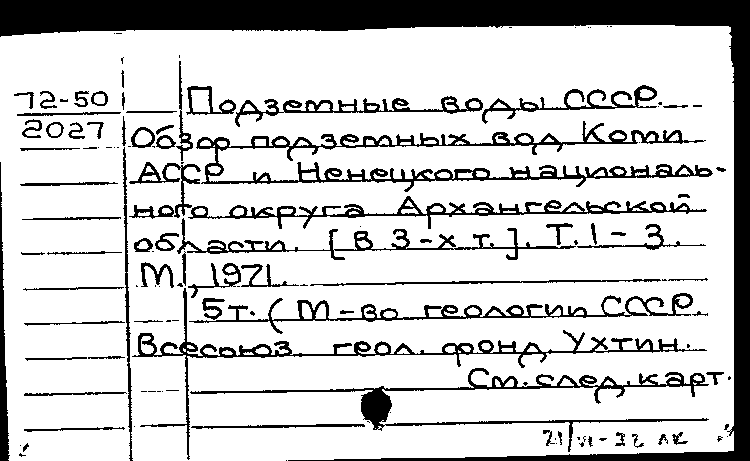 72-50
2027
Подземные воды СССР.
Обзор подземных вод Коми
АССР и Ненецкого националь-
ного округа Архангельской
области. [В 3-х т.]. Т. 1-3.
М., 1971.
5т. (М-во геологии СССР.
Всесоюз. геол. фонд, Ухтин.
См. след. карт.